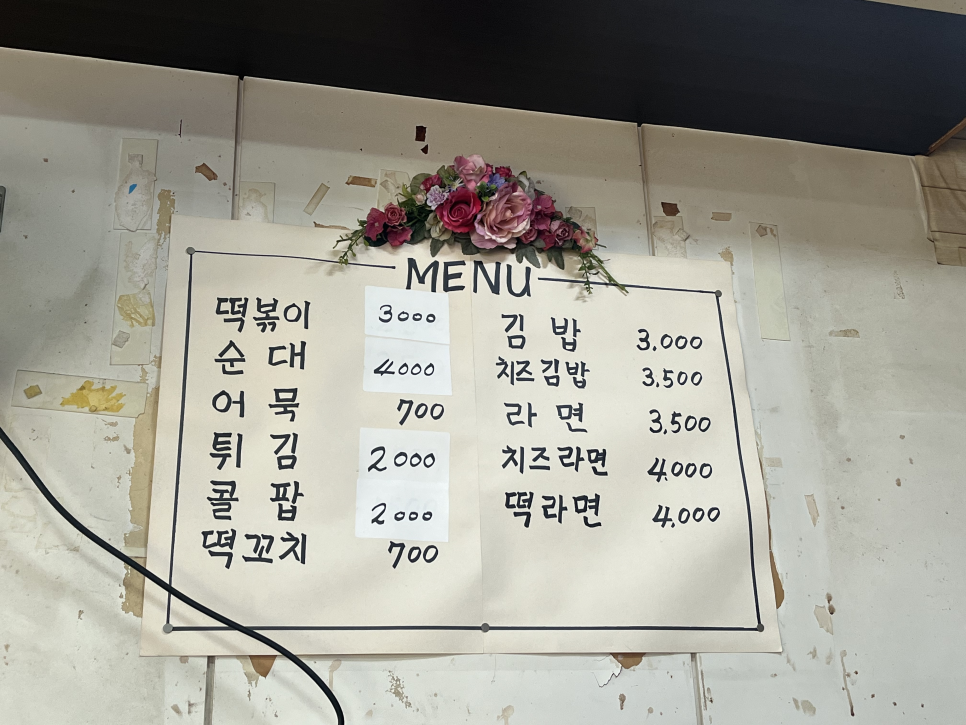 MENU
떡볶이 3000
순대 4000
어묵 700
튀김 2000
콜팝 2000
떡꼬치 700
김밥 3,000
치즈김밥 3,500
라면 3,500
치즈라면 4,000
떡라면 4,000